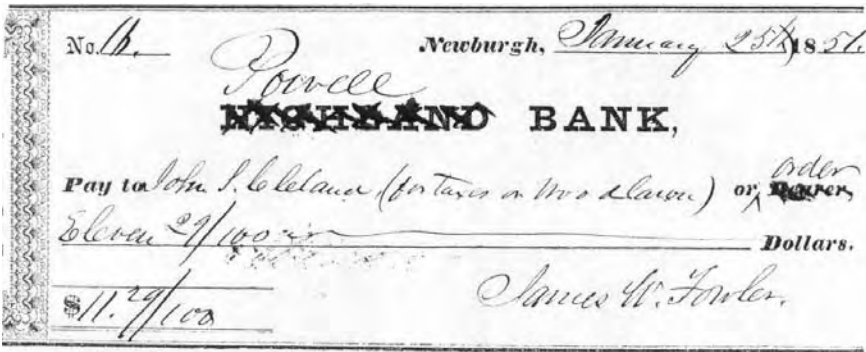 No. 16. Newburgh, January 25th 1851.
Powell
HIGHLAND BANK,
Pay to John S. Cleland (for taxes on Woodlawn) or order Bearer,
Eleven 29/100 Dollars.
$11.29/100
James W. Fowler.